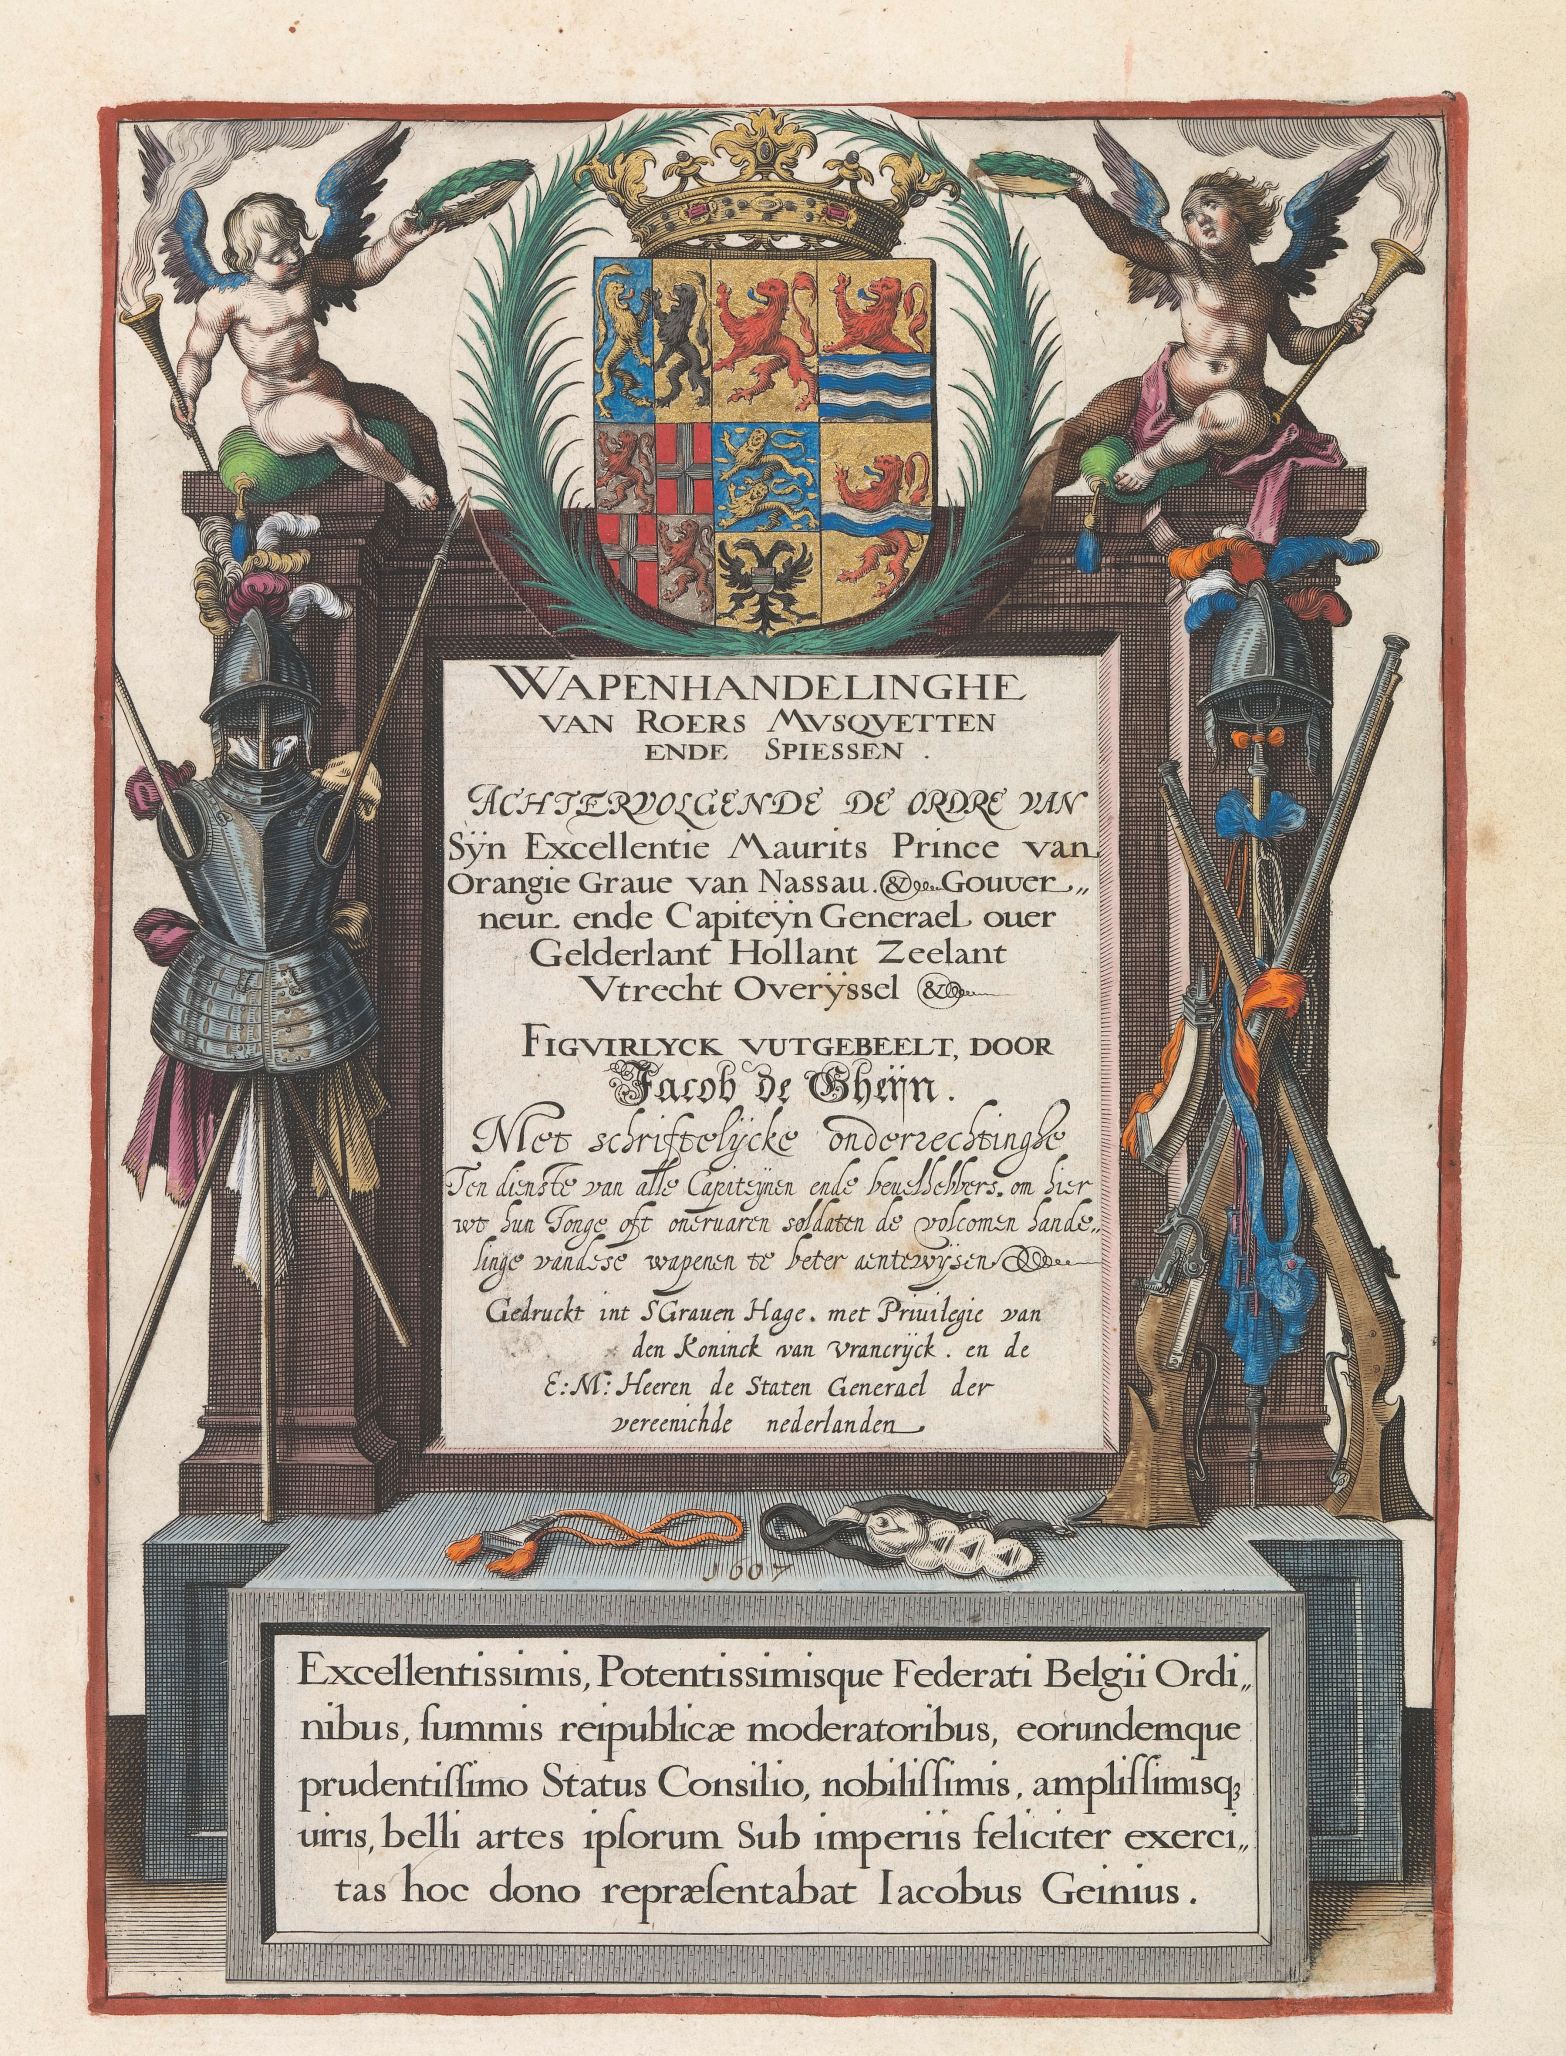 WAPENHANDELINGHE
VAN ROERS MVSQVETTEN
ENDE SPIESSEN.
ACHTERVOLGENDE DE ORDRE VAN
Sÿn Excellentie Maurits Prince van
Orangie Graue van Nassau. & Gouver„
neur ende Capiteÿn Generael ouer
Gelderlant Hollant Zeelant
Vtrecht Overÿssel &
FIGVIRLYCK VUTGEBEELT, DOOR
Jacob de Gheÿn.
Met schriftelÿcke onderrechtinghe
Ten dienste van alle Capiteÿnen ende beuelhebbers. om hier
wt hun Jonge oft oneruaren soldaten de volcomen hande„
linge van dese wapenen te beter aentewÿsen
Gedruckt int SGrauen Hage. met Priuilegie van
den Koninck van Vrancrÿck. en de
E:M: Heeren de Staten Generael der
vereenichde nederlanden
1607
Excellentissimis, Potentissimisque Federati Belgii Ordi„
nibus, ſummis reipublicæ moderatoribus, eorundemque
prudentiſſimo Status Consilio, nobiliſſimis, ampliſſimisqꝫ
uiris, belli artes ipſorum Sub imperiis feliciter exerci„
tas hoc dono repræſentabat Iacobus Geinius.